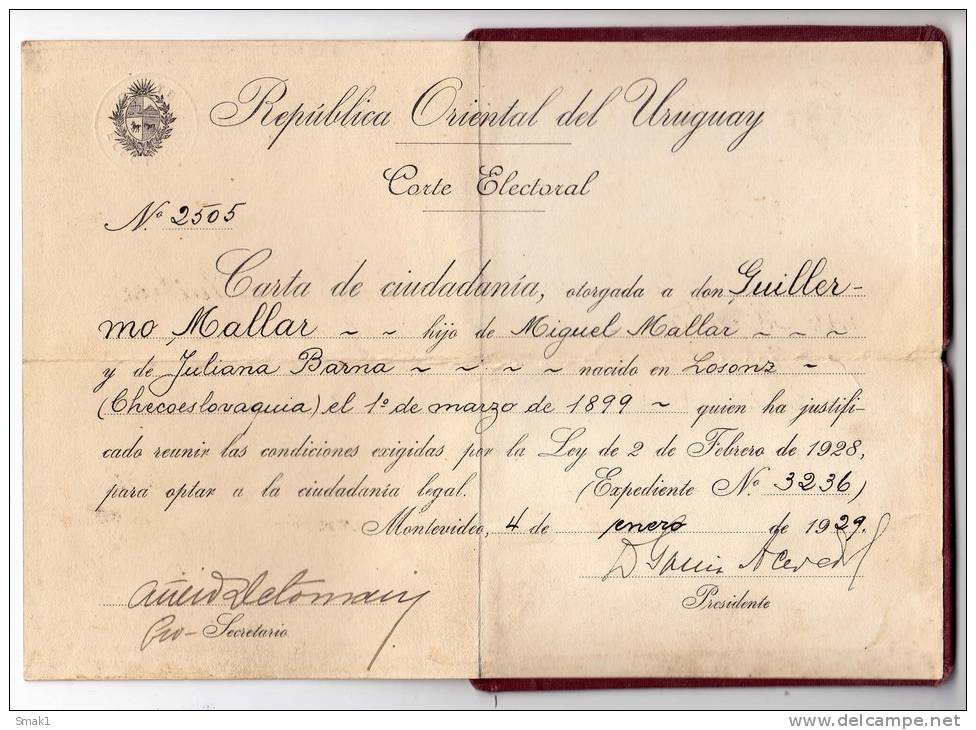 República Oriental del Uruguay
Corte Electoral
Nº 2505
Carta de ciudadanía, otorgada a don Guiller-
mo Mallar ~ ~ hijo de Miguel Mallar ~ ~ ~
y de Juliana Barna ~ ~ ~ ~ nacido en Losonz ~
(Checoeslovaquia) el 1º de marzo de 1899 ~ quien ha justifi-
cado reunir las condiciones exigidas por la Ley de 2 de Febrero de 1928,
para optar a la ciudadanía legal. (Expediente Nº 3236)
Montevideo, 4 de enero de 1929.
Presidente
Pro-Secretario
Smak1
www.delcampe.net